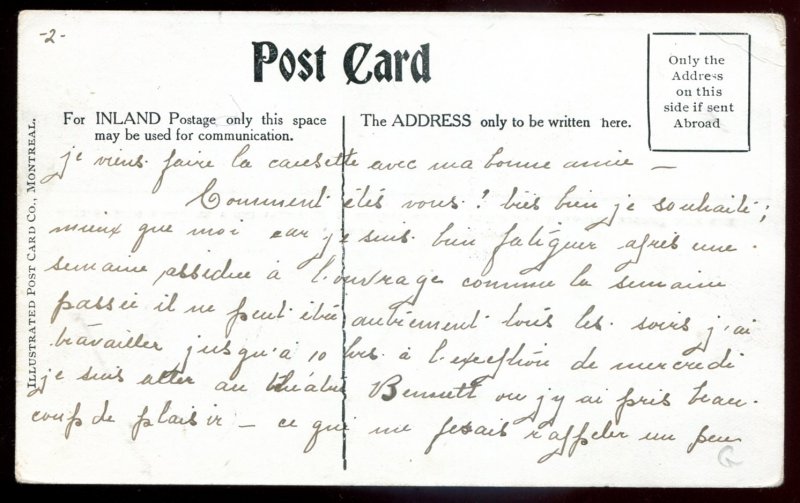 -2-
Post Card
Only the
Address
on this
side if sent
Abroad
For INLAND Postage only this space
may be used for communication.
The ADDRESS only to be written here.
ILLUSTRATED POST CARD CO., MONTREAL.
je viens faire la causette avec ma bonne amie —
Comment êtes vous? bien je souhaite;
mieux que moi car je suis bien fatiguer après une
semaine assidue à l'ouvrage comme la semaine
passée il ne peut être autrement tous les soirs j'ai
travailler jusqu'à 10 hrs. à l'exception de mercredi
je suis aller au théâtre Bennett ou j'y ai pris beau-
coup de plaisir — ce qui me fesais rappeler un peu
G